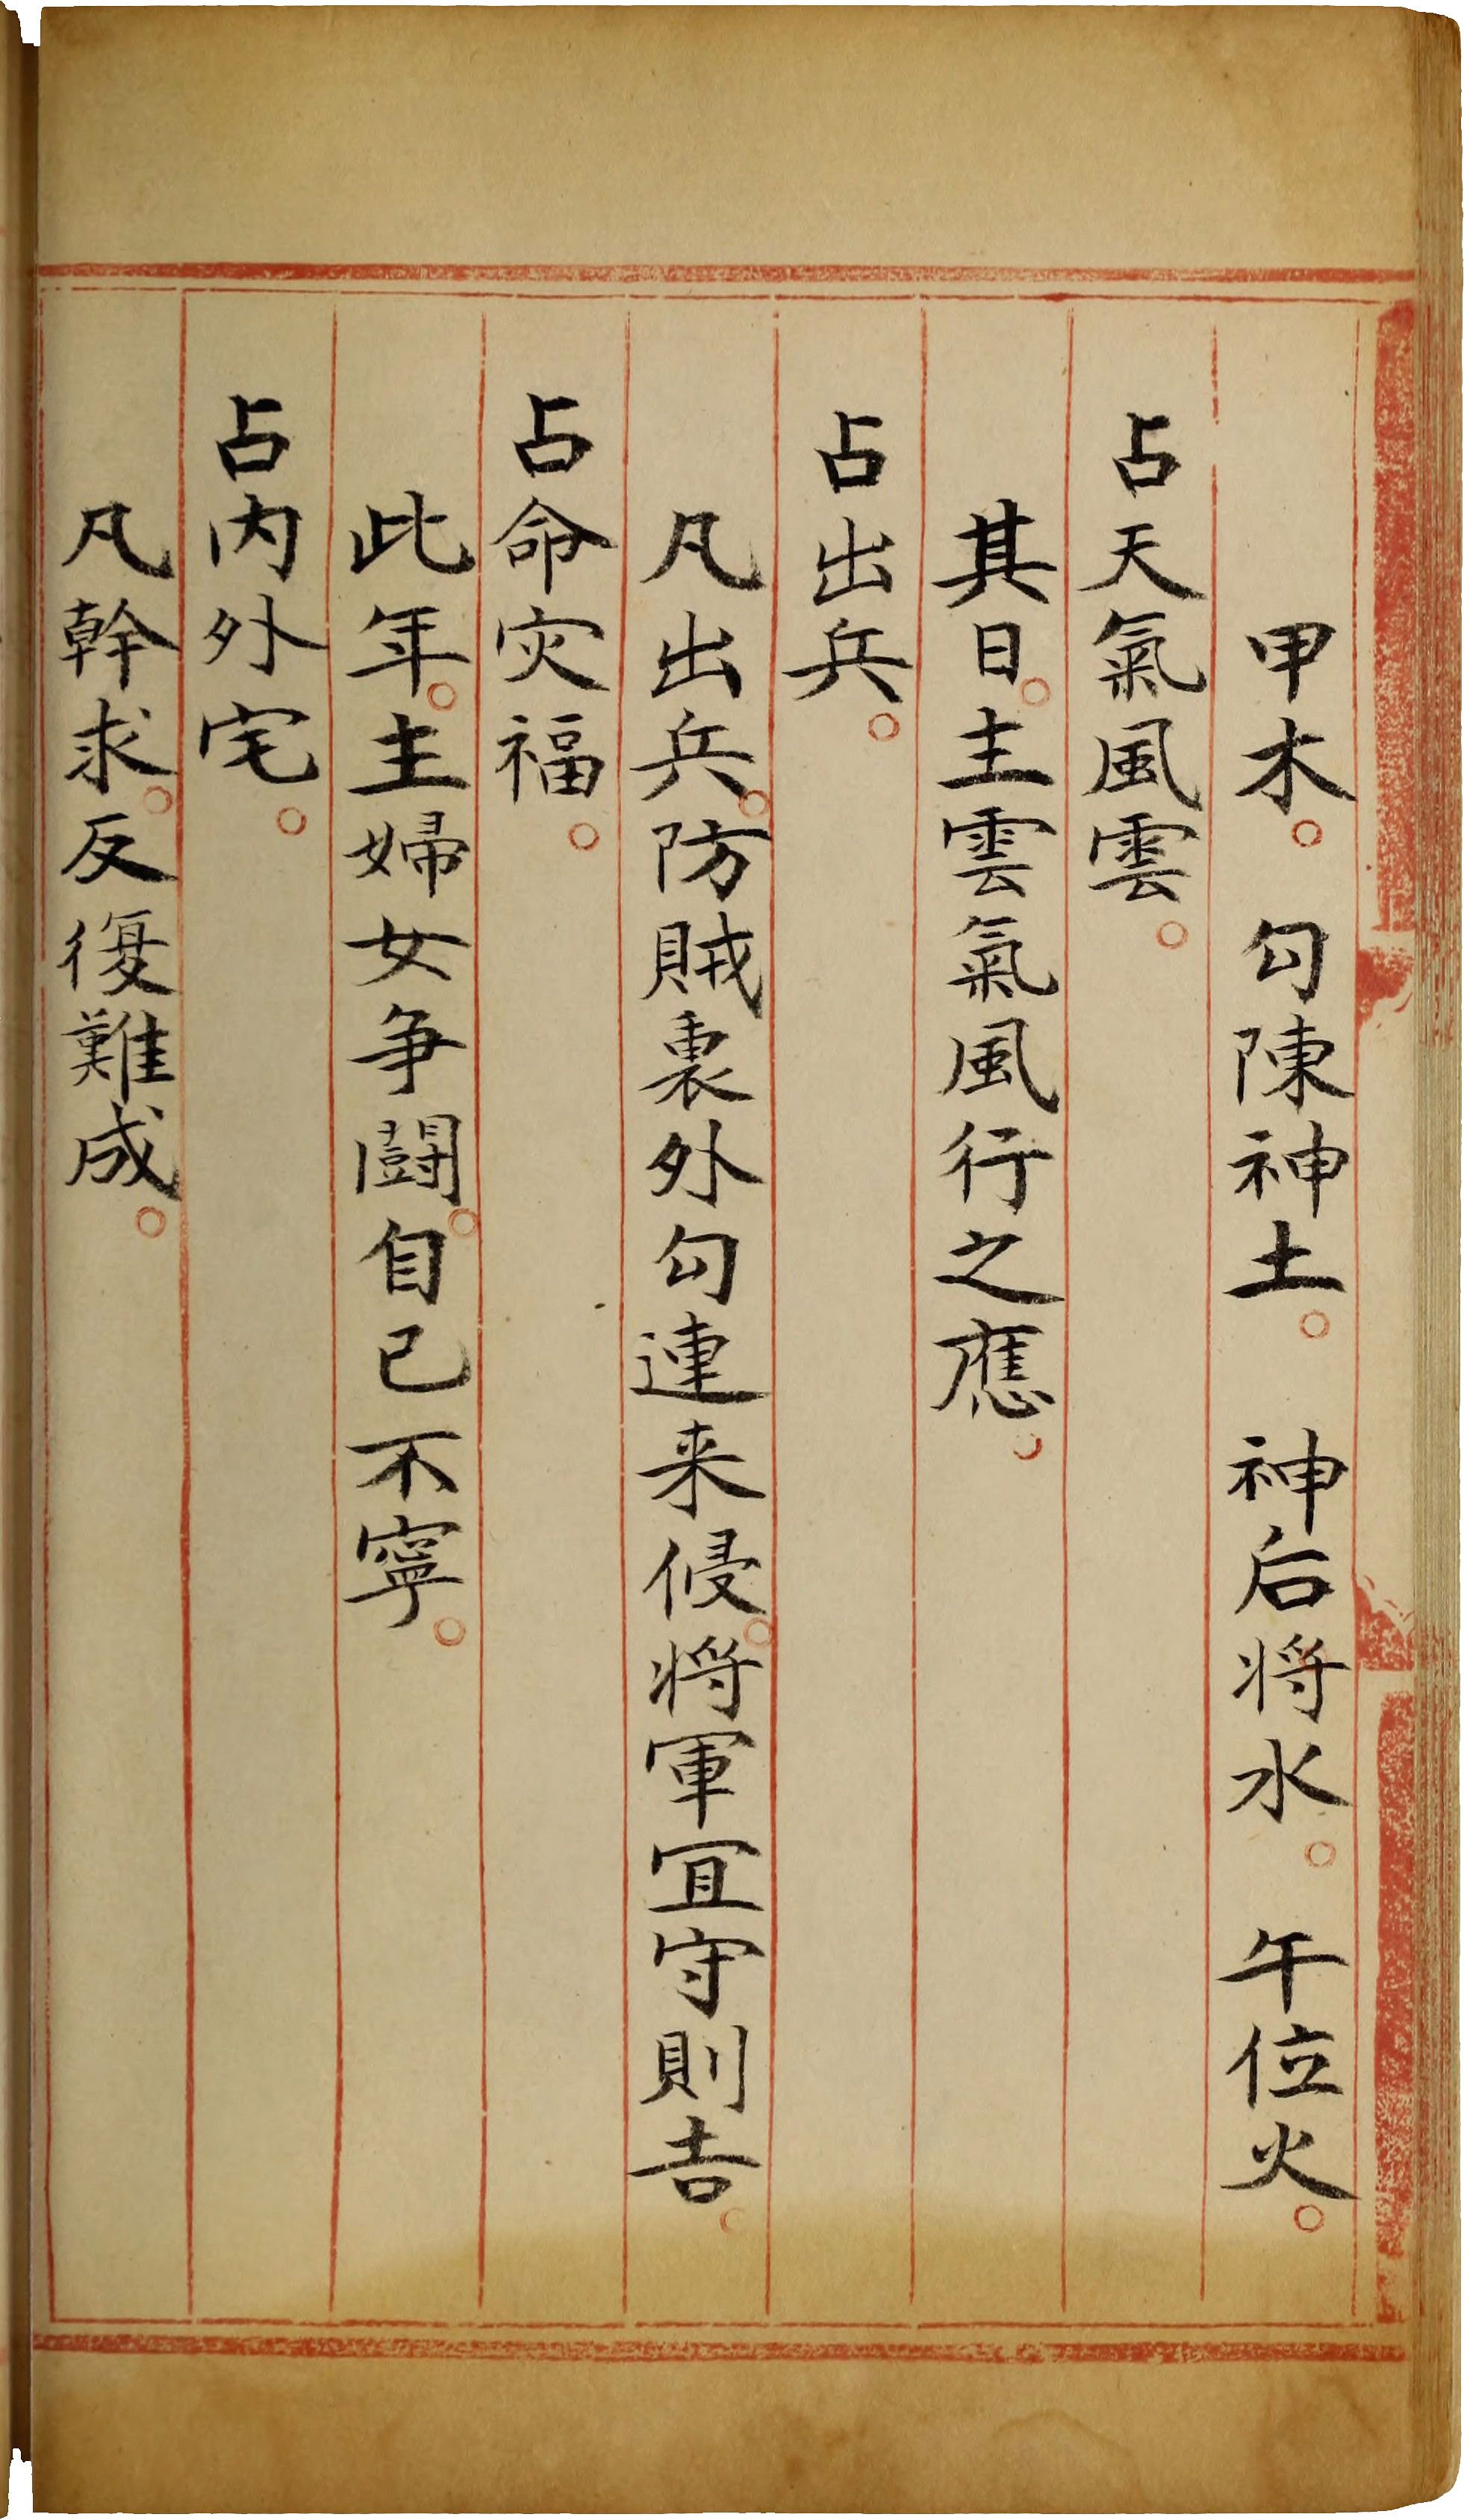 甲木。 勾陳神土。 神后将水。 午位火。
占天氣風雲。
其日。主雲氣風行之應。
占出兵。
凡出兵。防賊裏外勾連来侵。将軍宜守則吉。
占命灾福。
此年。主婦女争鬪。自己不寧。
占内外宅。
凡幹求。反復難成。